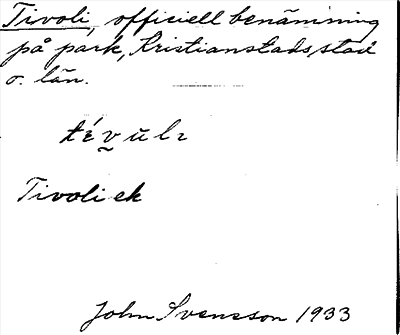 Tivoli, officiell benämning
på park, Kristianstads stad
o. län.
tévŭlɩ
Tivoli ek
John Svensson 1933